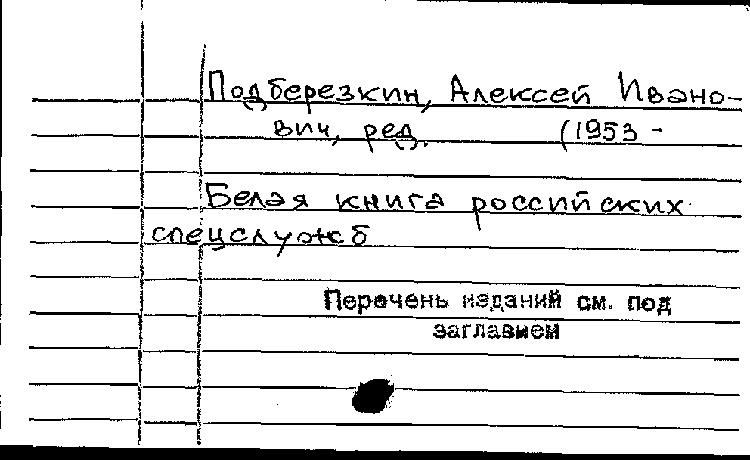 Подберезкин, Алексей Ивано-
вич, ред. (1953 -
Белая книга российских
спецслужб
Перечень изданий см. под
заглавием